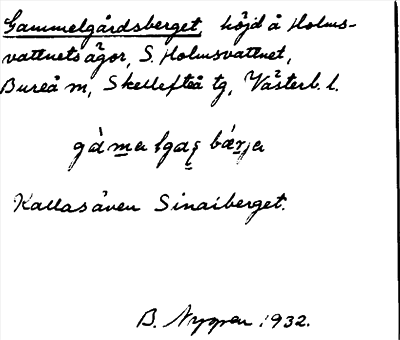 Gammelgårdsberget, höjd å Holms-
vattnets ägor, S. Holmsvattnet,
Bureå sn, Skellefteå tg, Västerb. l.
Kallas även Sinaiberget.
B. Nygren 1932.